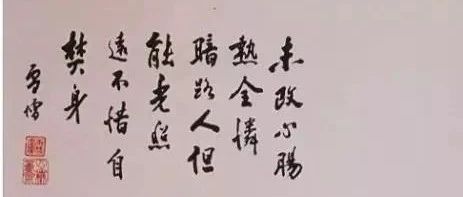 未改心腸
熱全憐
暗路人但
能光照
遠不惜自
焚身
雪僧